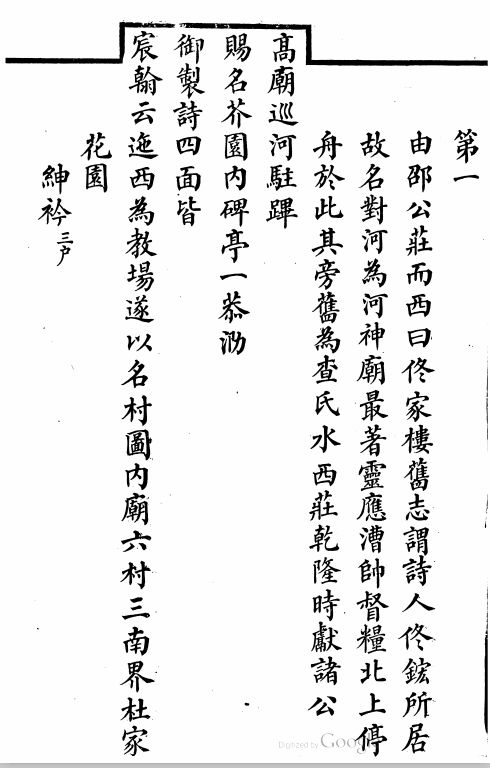 第一
由邵公莊而西曰佟家樓舊志謂詩人佟鋐所居
故名對河為河神廟最著靈應漕帥督糧北上停
舟於此其旁舊為查氏水西莊乾隆時獻諸公
高廟巡河駐蹕
賜名芥園內碑亭一恭泐
御製詩四面皆
宸翰云迤西為教場遂以名村圖內廟六村三南界杜家
花園
紳衿三戶
Digitized by Google